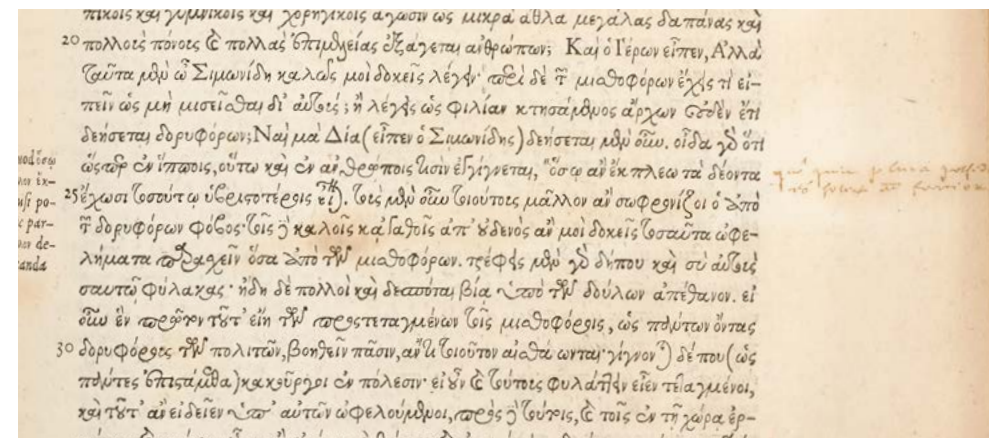 πικοῖς καὶ γυμνικοῖς καὶ χορηγικοῖς ἀγῶσιν ὡς μικρὰ ἆθλα μεγάλας δαπάνας καὶ
20 πολλοὺς πόνους καὶ πολλὰς ἐπιμελείας ἐξάγεται ἀνθρώπων; Καὶ ὁ Ἱέρων εἶπεν, Ἀλλὰ
ταῦτα μὲν ὦ Σιμωνίδη καλῶς μοι δοκεῖς λέγειν· περὶ δὲ τῶν μισθοφόρων ἔχεις τί εἰ-
πεῖν ὡς μὴ μισεῖσθαι δι' αὐτούς; ἢ λέγεις ὡς φιλίαν κτησάμενος ἄρχων οὐδὲν ἔτι
δεήσεται δορυφόρων; Ναὶ μὰ Δία (εἶπεν ὁ Σιμωνίδης) δεήσεται μὲν οὖν. οἶδα γὰρ ὅτι
ὥσπερ ἐν ἵπποις, οὕτω καὶ ἐν ἀνθρώποις τισὶν ἐγγίγνεται, ὅσῳ ἂν ἔκπλεω τὰ δέοντα
25 ἔχωσι τοσούτῳ ὑβριστοτέροις εἶναι. τοὺς μὲν οὖν τοιούτους μᾶλλον ἂν σωφρονίζοι ὁ ἀπὸ
τῶν δορυφόρων φόβος· τοῖς δὲ καλοῖς κἀγαθοῖς ἀπ' οὐδενὸς ἄν μοι δοκεῖς τοσαῦτα ὠφε-
λήματα παρασχεῖν ὅσα ἀπὸ τῶν μισθοφόρων. τρέφεις μὲν γὰρ δήπου καὶ σὺ αὐτοὺς
σαυτῷ φύλακας· ἤδη δὲ πολλοὶ καὶ δεσπόται βίᾳ ὑπὸ τῶν δούλων ἀπέθανον. εἰ
οὖν ἓν πρῶτον τοῦτ' εἴη τῶν προστεταγμένων τοῖς μισθοφόροις, ὡς πάντων ὄντας
30 δορυφόρους τῶν πολιτῶν, βοηθεῖν πᾶσιν, ἄν τι τοιοῦτον αἰσθάνωνται· γίγνονται δέ που (ὡς
πάντες ἐπιστάμεθα) κακοῦργοι ἐν πόλεσιν· εἰ οὖν καὶ τούτους φυλάττειν εἶεν τεταγμένοι,
καὶ τοῦτ' ἂν εἰδεῖεν ὑπ' αὐτῶν ὠφελούμενοι, πρὸς δὲ τούτοις, καὶ τοῖς ἐν τῇ χώρᾳ ἐρ-